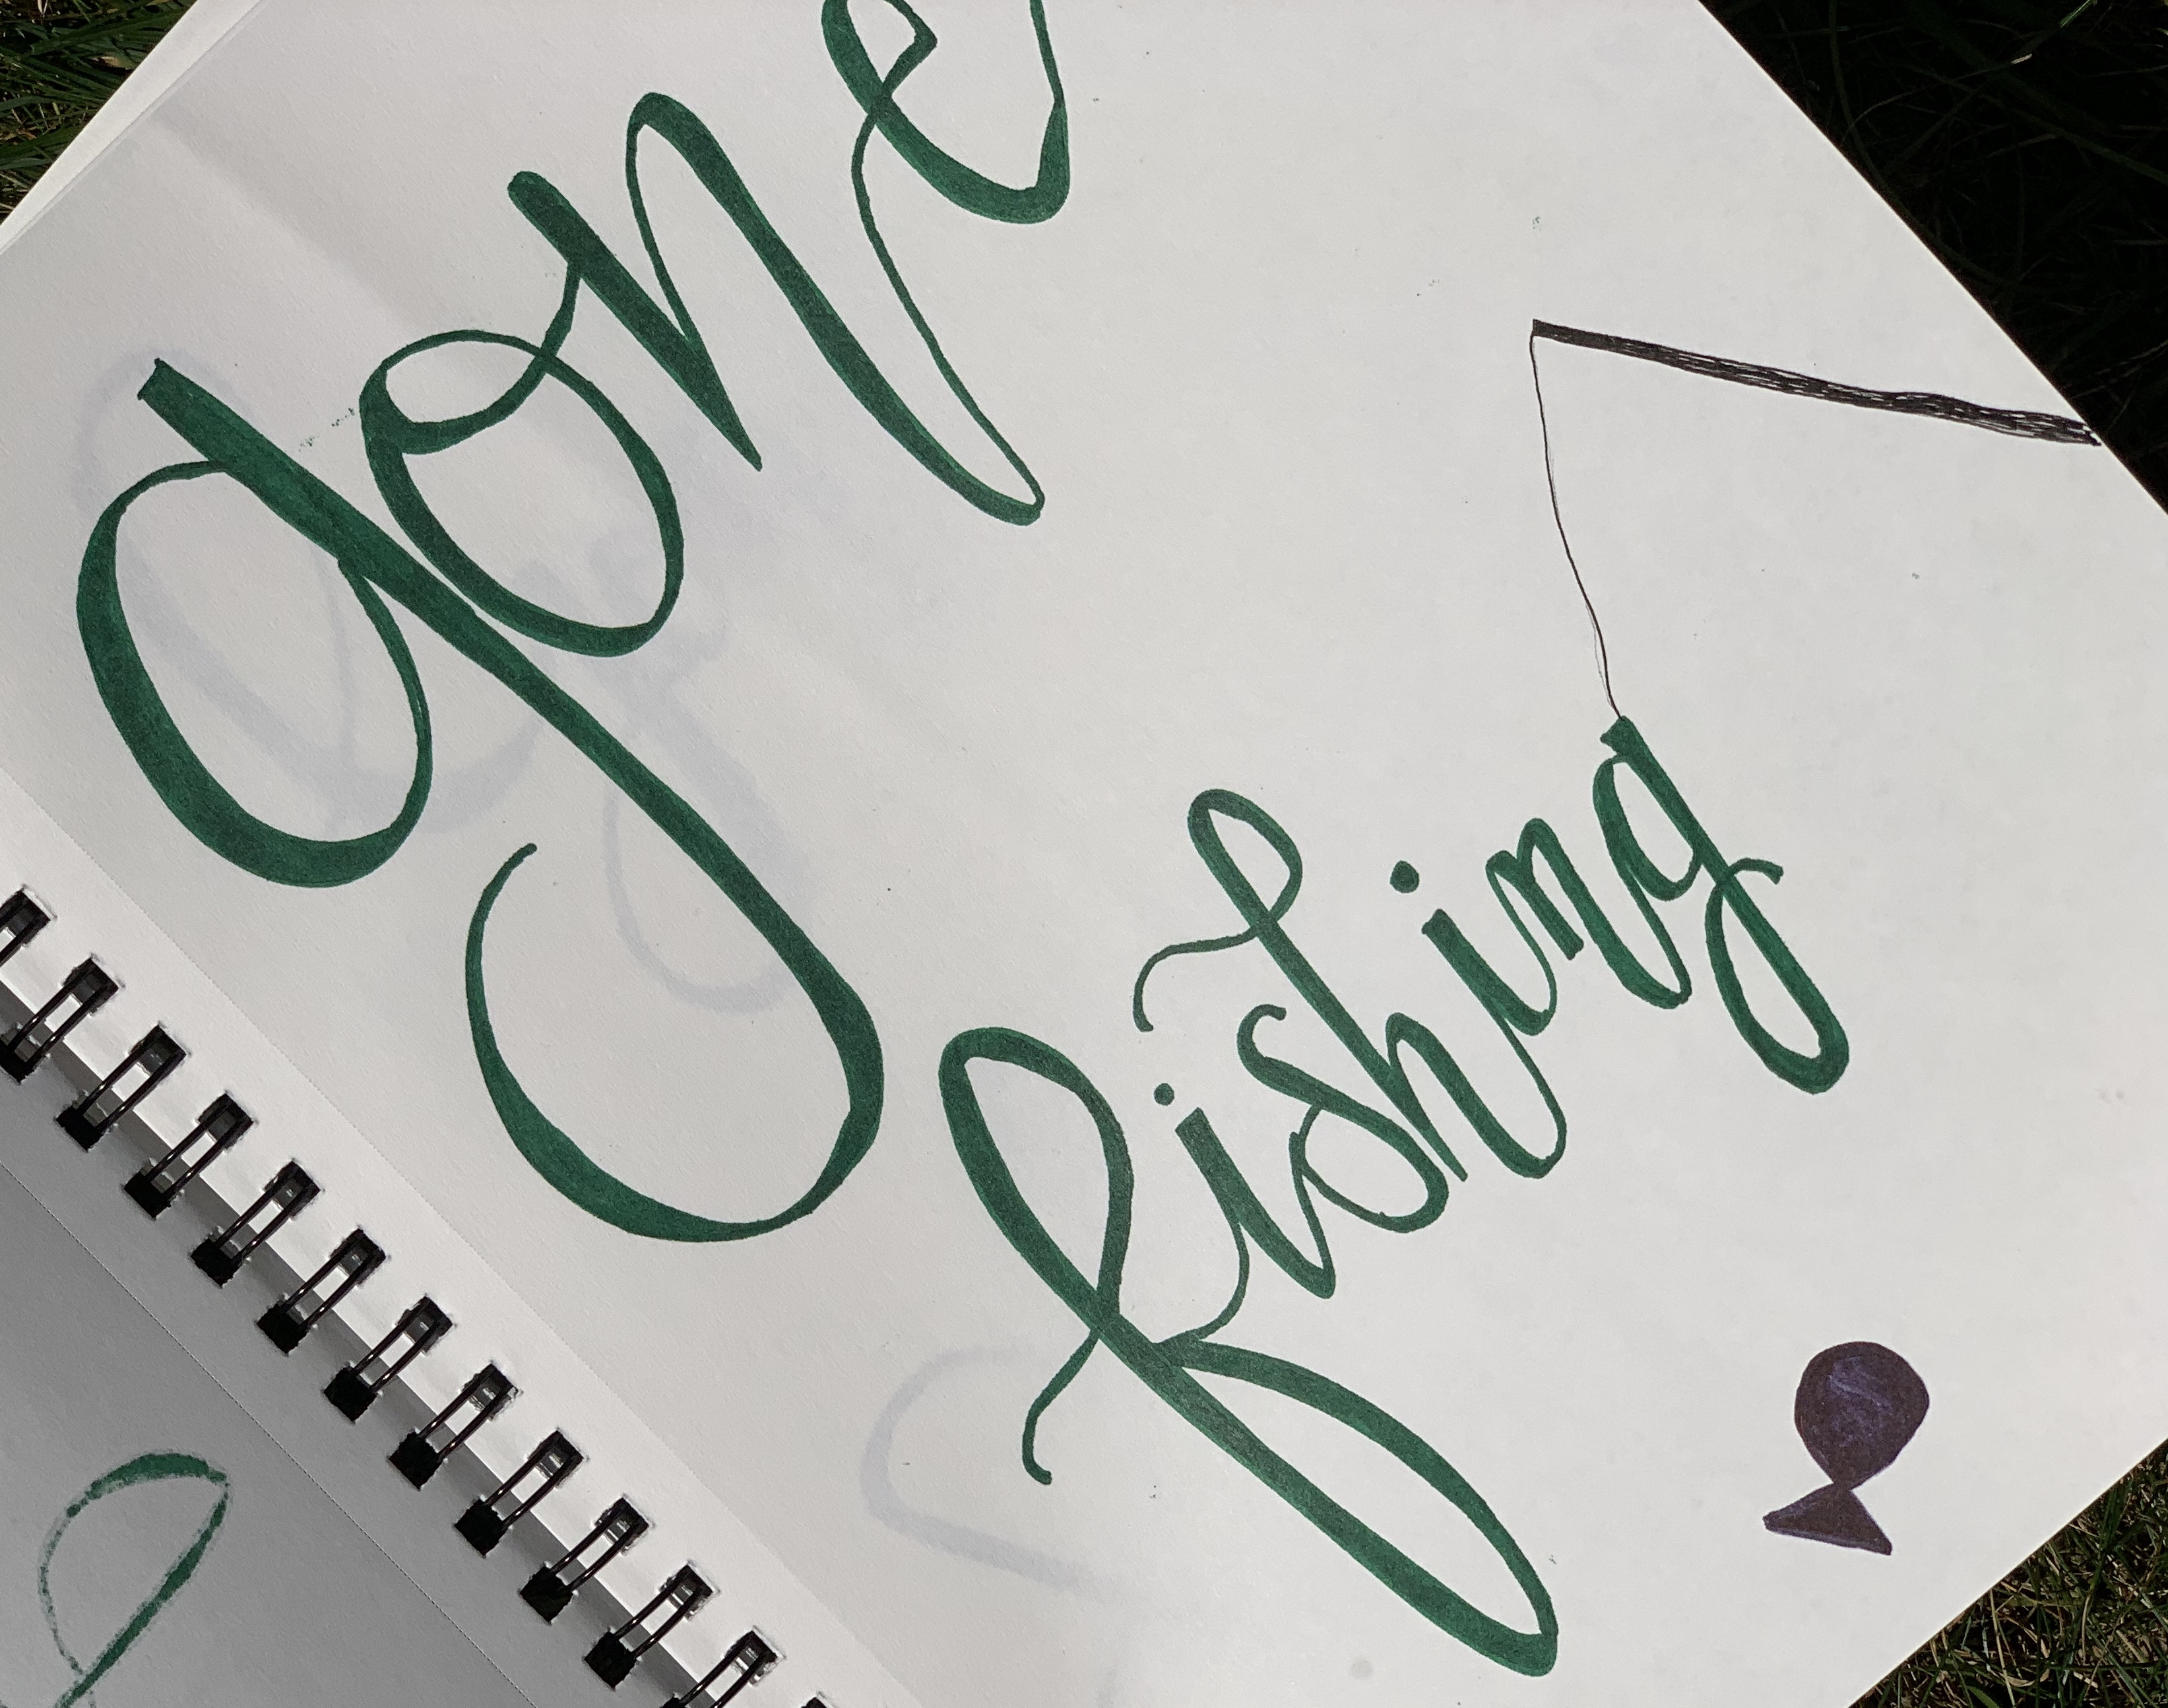 gone
fishing